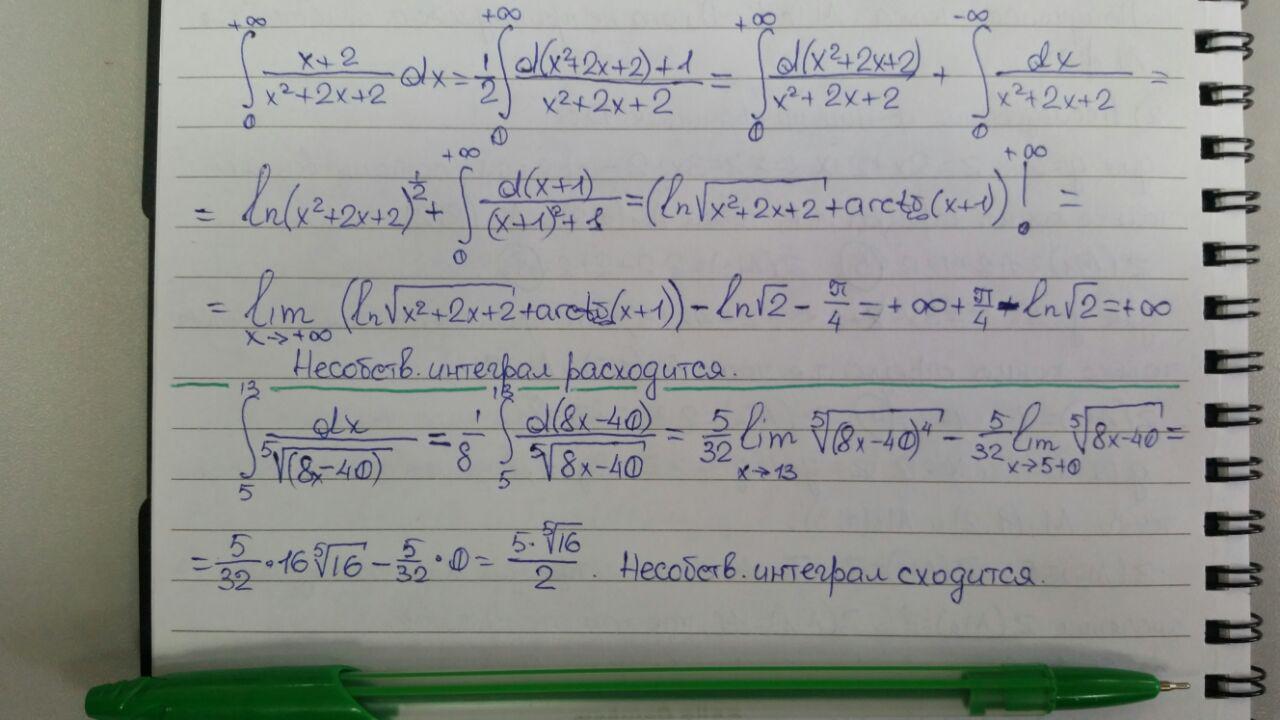 ∫₀^{+∞} (x+2)/(x²+2x+2) dx = 1/2 ∫₀^{+∞} (d(x²+2x+2)+1)/(x²+2x+2) = ∫₀^{+∞} d(x²+2x+2)/(x²+2x+2) + ∫₀^{-∞} dx/(x²+2x+2) =
= ln(x²+2x+2)^{1/2} + ∫₀^{+∞} d(x+1)/((x+1)²+1) = (ln√(x²+2x+2) + arctg(x+1)) |₀^{+∞} =
= lim_{x→+∞} (ln√(x²+2x+2) + arctg(x+1)) - ln√2 - π/4 = +∞ + π/4 - ln√2 = +∞
Несобств. интеграл расходится.
∫₅^{13} dx/⁵√(8x-40) = 1/8 ∫₅^{13} d(8x-40)/⁵√(8x-40) = 5/32 lim_{x→13} ⁵√((8x-40)⁴) - 5/32 lim_{x→5+0} ⁵√(8x-40) =
= 5/32 · 16 ⁵√16 - 5/32 · 0 = (5·⁵√16)/2 . Несобств. интеграл сходится.